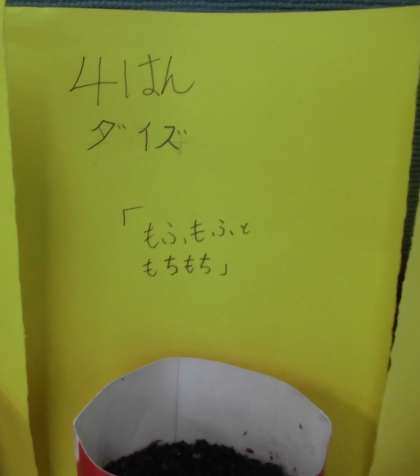 4はん
ダイズ
「もふもふと
もちもち」